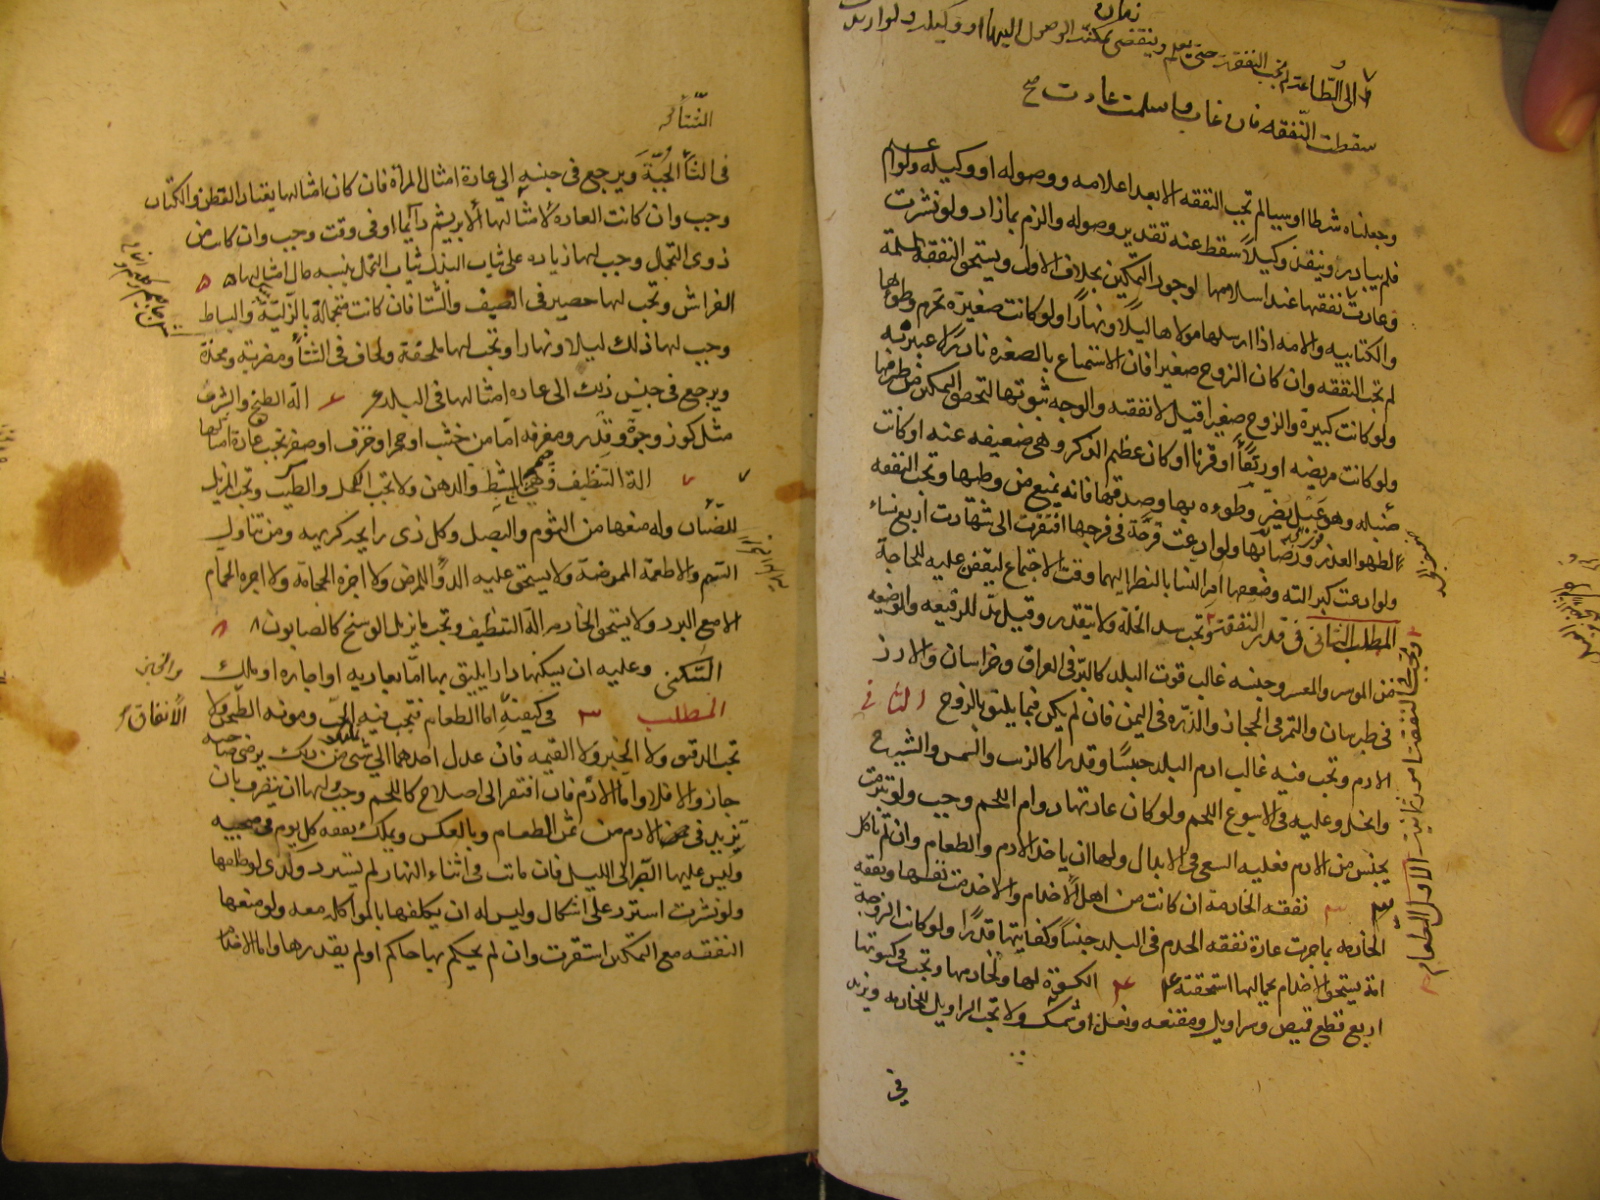 زمان
الى الطاعة لم تجب النفقة حتى يعلم وينقضى زمان يمكنه الوصول اليها او وكيله ولو ارتدت
سقطت النفقه فان غاب واسلمت عادت صح
وجعلناه شرطا او سببا لم تجب النفقه الا بعد اعلامه ووصوله او وكيله ولو اعلم
فلم يبادر وينفذ وكيلاً سقط عنه تقدير وصوله والزم بمازاد ولو نشزت
وعادت نفقتها عند اسلامها لوجود التمكين بخلاف الاول ويستحق النفقة المسلمة
والكتابيه والامه اذا ارسلها مولاها ليلًا ونهارًا ولو كانت صغيرة تحرم وطؤها
لم تجب النفقه وان كان الزوج صغيرا فان الاستمتاع بالصغره نادر لا عبرة به
ولو كانت كبيرة والزوج صغيرا قيل لا نفقه والوجه ثبوتها لتحقق التمكين من طرفها
ولو كانت مريضه او رتقاً او قرنا او كان عظيم الذكر وهى ضعيفه عنه او كانت
ضئيله وهو عبل يضر وطؤه بها وصدقها فانه يمنع من وطيها وتجب النفقه
لظهور العذر ورضائها ولو ادعت قرحة فى فرجها افتقرت الى شهادت اربع نساء
ولو ادعت كبر آلته وضعفها امر النسا بالنظر اليهما وقت الاجتماع ليقفن عليه للحاجة
المطلب الثانى فى قدر النفقة وتجب سد الخلة ولا يتقدر وقيل مد للرفيعه والوضيعه
من الموسر والمعسر وجنسه غالب قوت البلد كالبر فى العراق وخراسان والارز
فى طبرستان والتمر فى الحجاز والذره فى اليمن فان لم يكن فبما يليق بالزوج الثانى
الادم وتجب فيه غالب ادم البلد جنسًا وقدرا كالزيت والسمن والشيرج
والخل وعليه فى الاسبوع اللحم ولو كان عادتها دوام اللحم وجب ولو تبرمت
بجنس من الادم فعليه السعى فى الابدال ولها ان ياخذ الادم والطعام وان لم تأكل
٣ نفقه الخادمة ان كانت من اهل الاخدام والا خدمت نفسها ونفقه
الخادمه بما جرت عادة نفقه الخدم فى البلد جنساً وكفايتها قدرًا ولو كانت الزوجة
امة يستحق الاخدام بجمالها استحقته ٤ الكسوة لها ولخادمها وتجب فى كسوتها
اربع قطع قميص وسراويل ومقنعه ونعل او شمشك ولا تجب السراويل للخادمه ويزيد
فى
الاول الطعام
الشتأ
فى الشتأ الجبّة ويرجع فى جنسه الى عادة امثال المرأة فان كان امثالها يعتاد القطن والكتان
وجب وان كانت العادة لامثالها الابريشم دآيما او فى وقت وجب وان كانت من
ذوى التجمل وجب لها زياده على ثياب البذل ثياب التجمل بنسبه حال امثالها ٥
الفراش وتجب لها حصير فى الصيف والشتا فان كانت متجملة بالزلية والبساط
وجب لها ذلك ليلا ونهارا وتجب لها ملحفة ولحاف فى الشتأ ومضربة ومخدة
ويرجع فى جنس ذلك الى عاده امثالها فى البلد ٦ الة الطبخ والشرب
مثل كوز وجرة وقدر ومغرفه امّا من خشب او حجر او خزف او صفر بحسب عادة امثالها
٧ الة التنظيف وهى المشط والدهن ولا تجب الكحل والطيب وتجب المزيل
للصنان وله منعها من الثوم والبصل وكل ذى رايحه كريهه ومن تناول
السم والاطعمة الممرضة ولا يستحق عليه الدوأ للمرض ولا اجرة الحجامة ولا اجره الحمام
الا مع البرد ولا يستحق الخادمه الة التنظيف وتجب ما يزيل الوسخ كالصابون ٨
السكنى وعليه ان يسكنها دارا يليق بها امّا بعاريه او اجاره او ملك
المطلب ٣ فى كيفية الانفاق اما الطعام فتجب فيه الحب ومونه الطحن والخبز ولا
تجب الدقيق ولا الخبز ولا القيمه فان عدل احدهما الى شئ من ذلك برضى صاحبه
جاز والا فلا واما الأدم فان افتقر الى اصلاح كاللحم وجب ولها ان يتصرف بان
تزيد فى الادم من ثمن الطعام وبالعكس ويملك نفقه كل يوم فى صبيحته
وليس عليها الصبر الى الليل فان ماتت فى اثناء النهار لم يسترد وكذا لو طلقها
ولو نشزت استرد على اشكال وليس له ان يكلفها بالمواكله معه ولو منعها
النفقه مع التمكين استقرت وان لم يحكم بها حاكم او لم يقدرها واما الاخدام